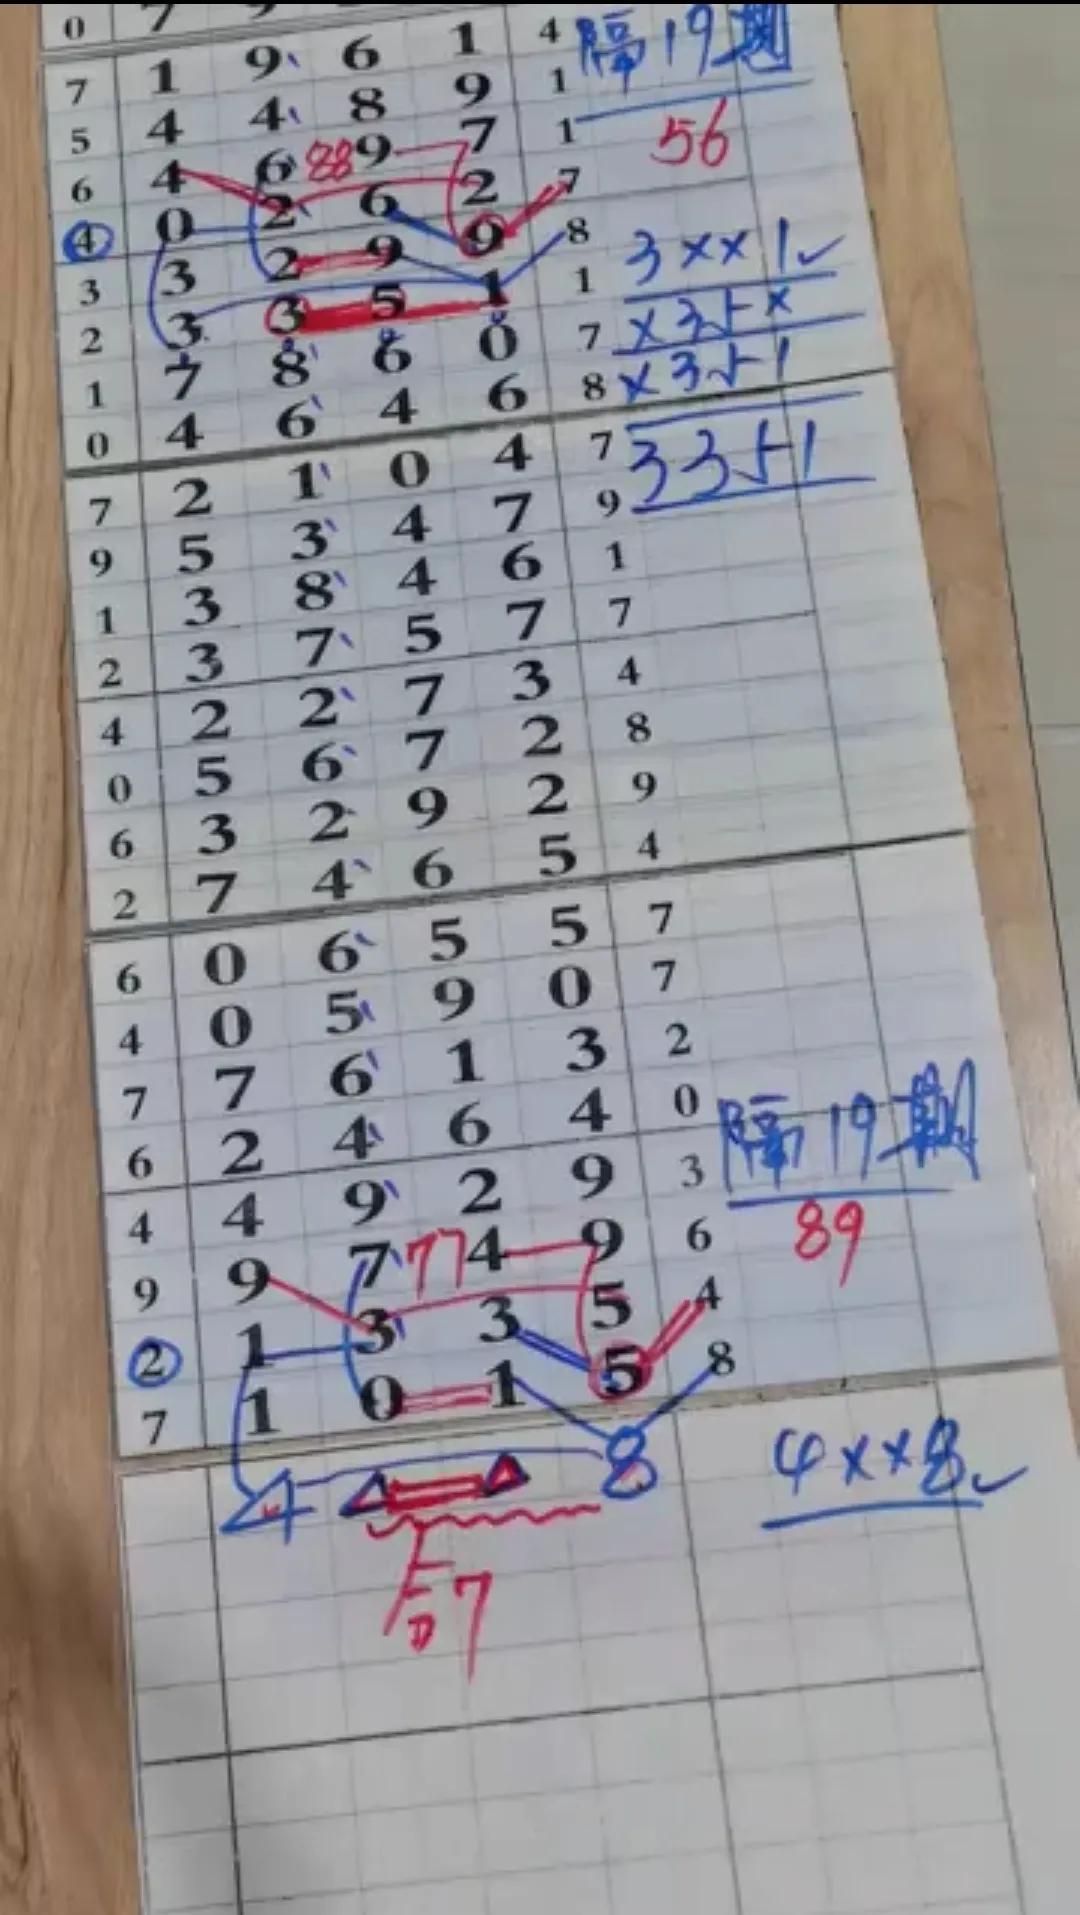 0 7 9
7 1 9 6 1 4 隔19期
5 4 4 8 9 1
6 4 6 88 9 7 1 56
4 0 2 6 2 7
3 3 2 9 9 8 3××1✓
2 3 3 5 1 1 ×35×
1 7 8 6 0 7 ×351
0 4 6 4 6 8
7 2 1 0 4 7 3351
9 5 3 4 7 9
1 3 8 4 6 1
2 3 7 5 7 7
4 2 2 7 3 4
0 5 6 7 2 8
6 3 2 9 2 9
2 7 4 6 5 4
6 0 6 5 5 7
4 0 5 9 0 7
7 7 6 1 3 2
6 2 4 6 4 0 隔19期
4 4 9 2 9 3
9 9 7 77 4 9 6 89
2 1 3 3 5 4
7 1 0 1 5 8
4 8 4××8✓